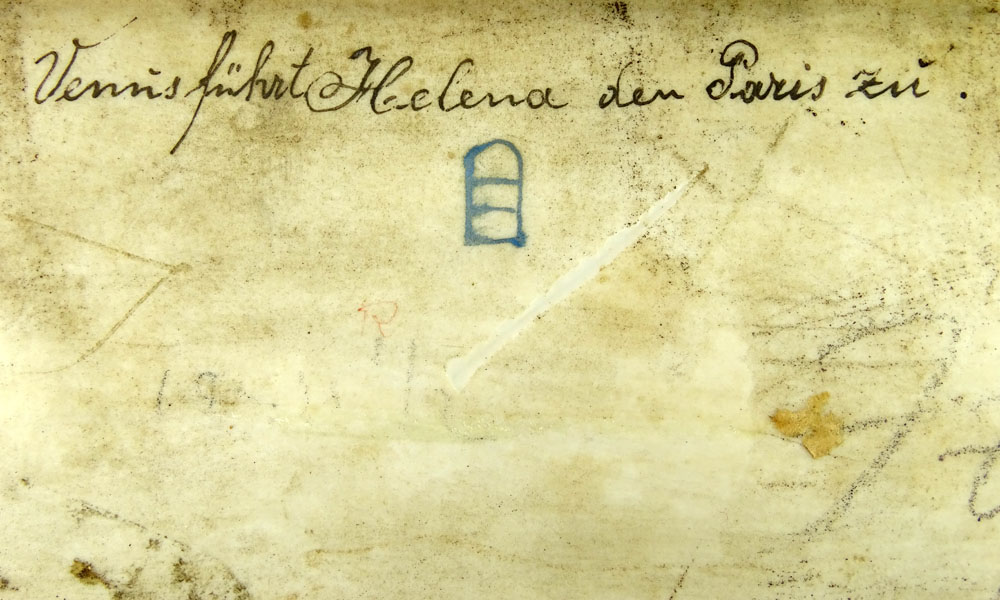 Venus führt Helena den Paris zu.